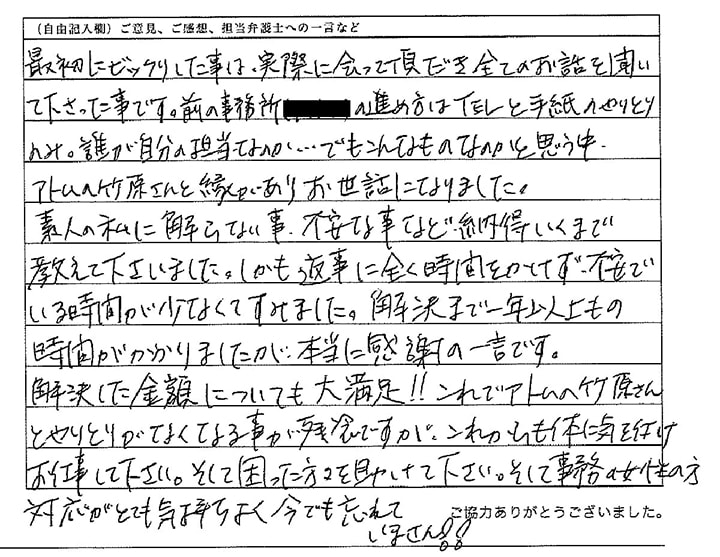 (自由記入欄)ご意見、ご感想、担当弁護士への一言など
最初にビックリした事は、実際に会って頂だき全てのお話を聞い
て下さった事です。前の事務所の進め方はTELと手紙のやりとり
のみ。誰が自分の担当なのか…でもこんなものなのかと思う中、
アトムの竹原さんと縁がありお世話になりました。
素人の私に解らない事、不安な事など納得いくまで
教えて下さいました。しかも返事に全く時間をかけず、不安で
いる時間が少なくてすみました。解決まで一年以上もの
時間がかかりましたが、本当に感謝の一言です。
解決した金額についても大満足!! これでアトムの竹原さん
とやりとりがなくなる事が残念ですが、これからも体に気を付け
お仕事して下さい。そして困った方々を助けて下さい。そして事務の女性の方
対応がとても気持ちよく今でも忘れて
いません!!
ご協力ありがとうございました。